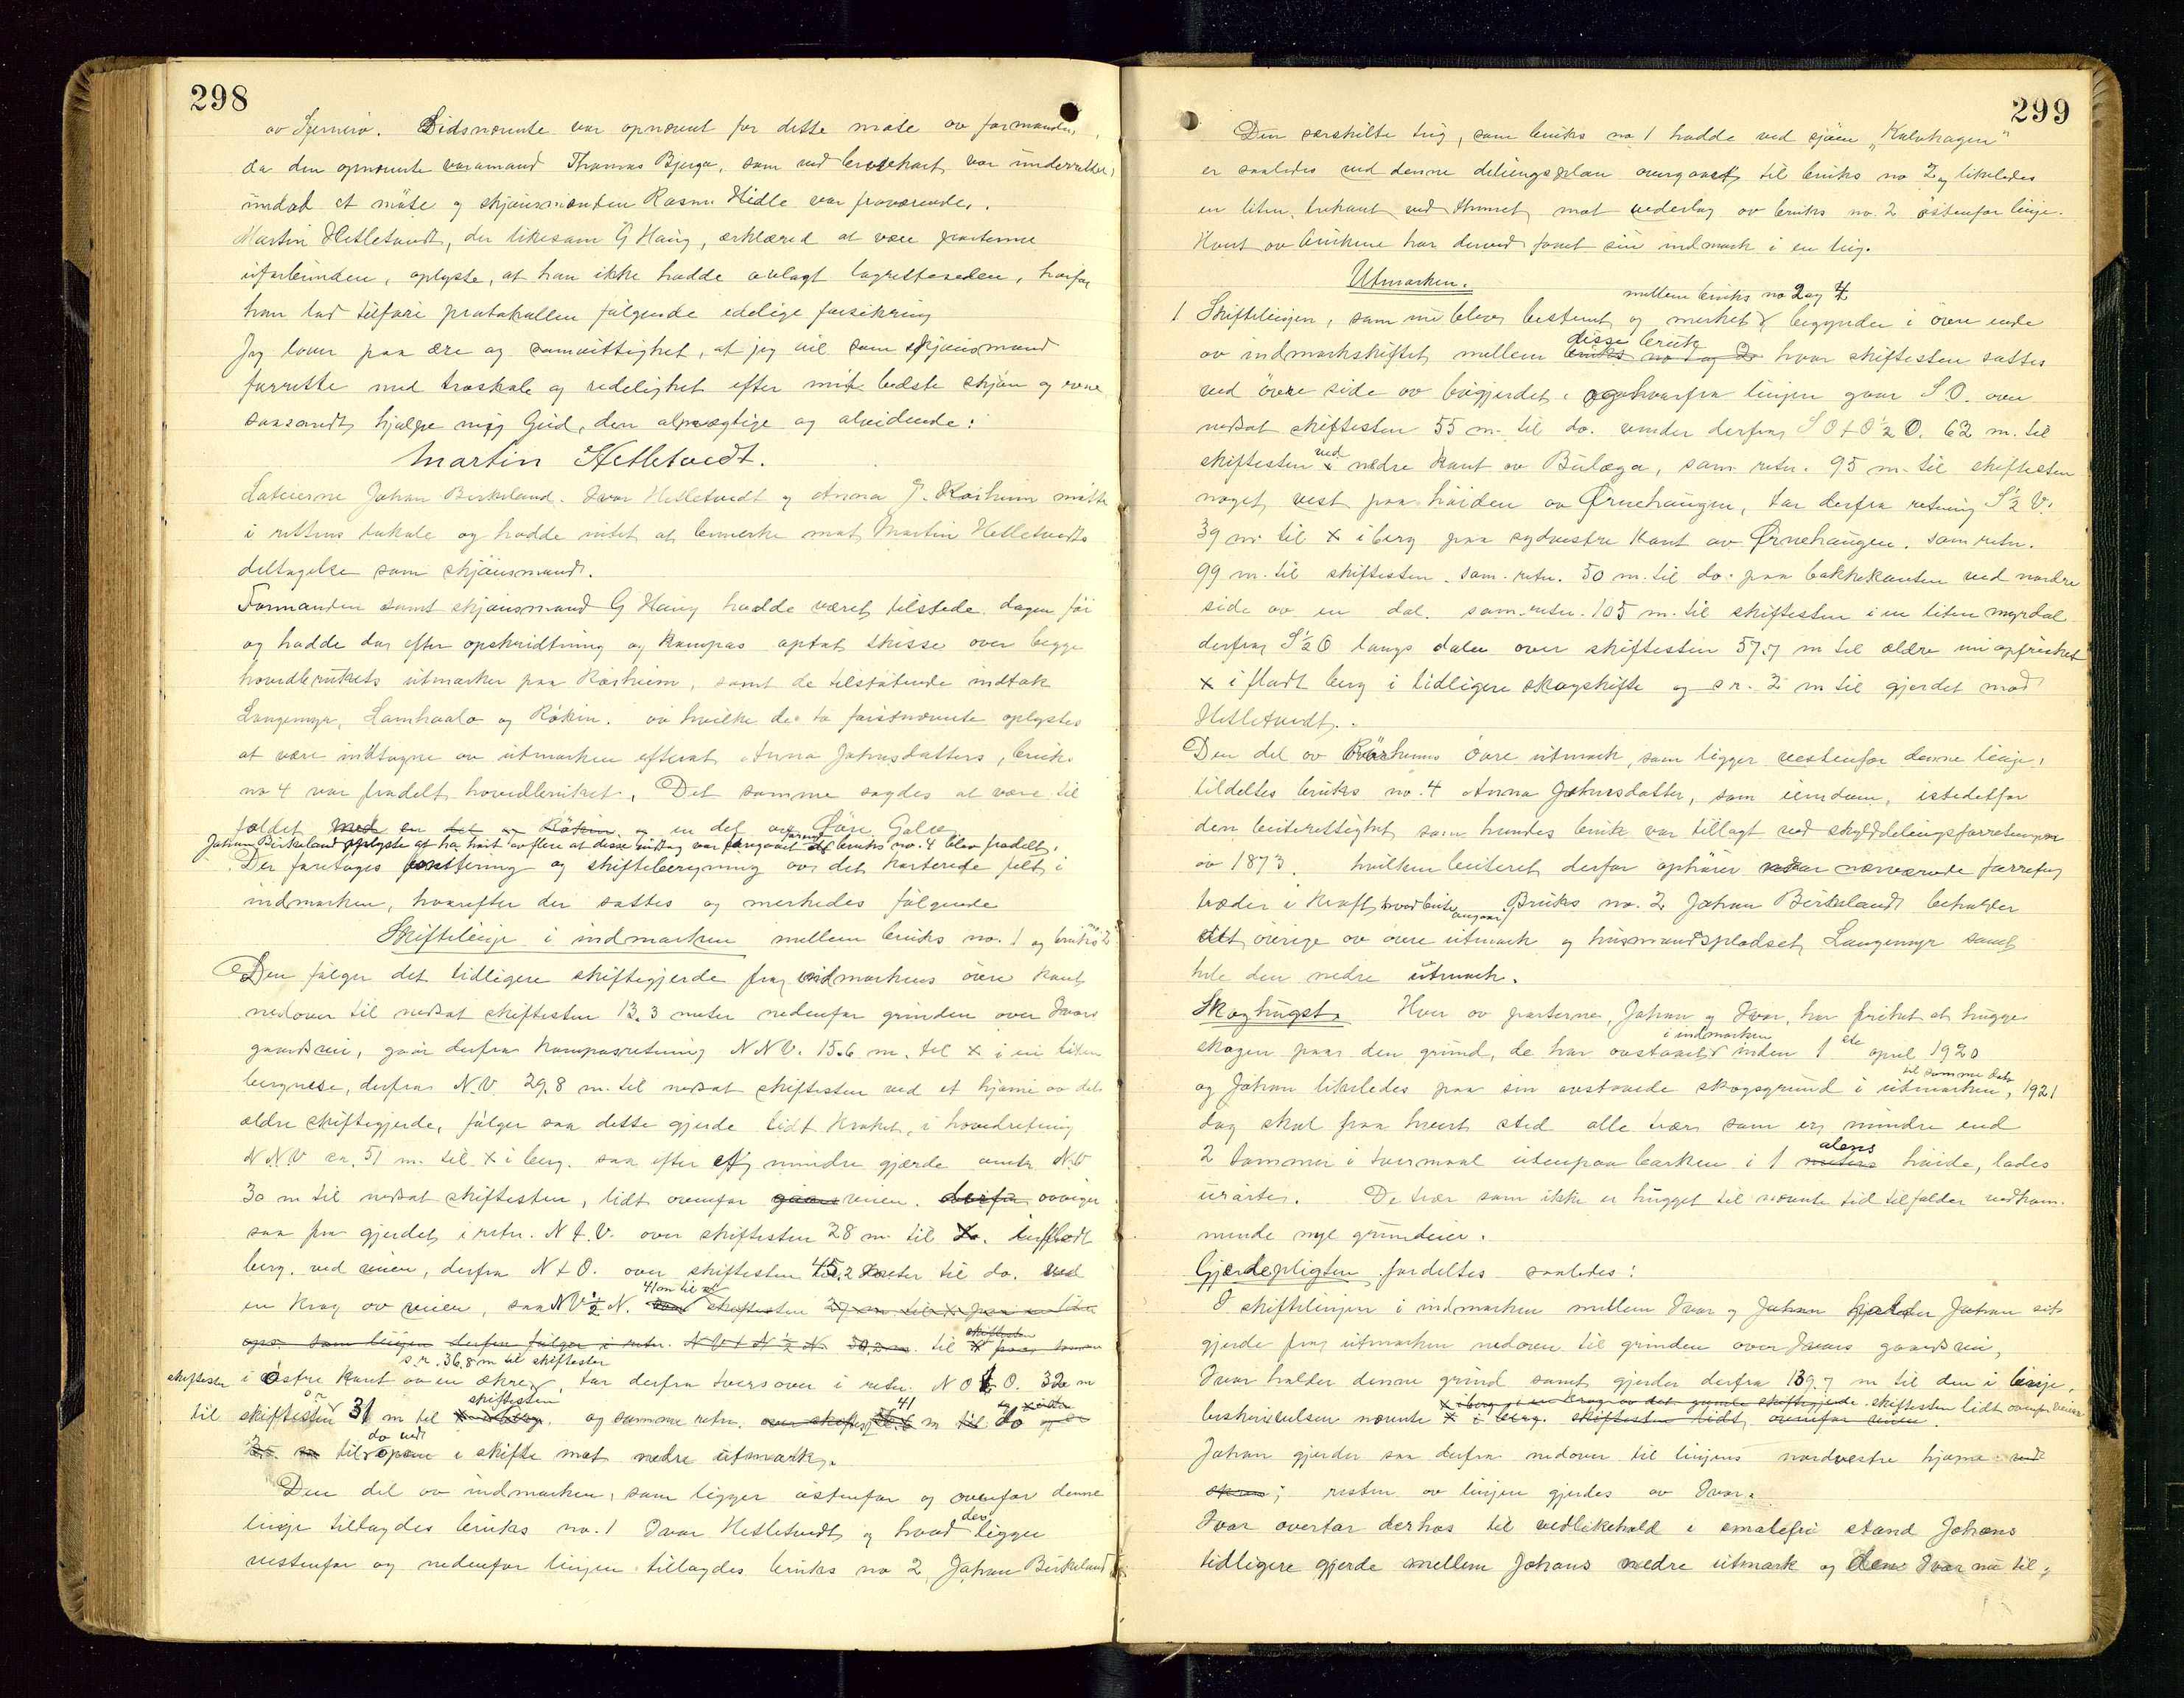 298
av Sjernerø. Sidsnævnte var opnævnt for dette møte av formanden,
da den opnævnte varamand Thomas Bjerga, som ved brevekort var underrettet,
undlod at møte og skjønsmanden Rasm. Hidle var fraværende.
Martin Hetletvedt, der likesom G Haug, erklæred at være parterne
uforbunden, oplyste, at han ikke hadde avlagt lagretteseden, hvorfor
han lod tilføre protokollen følgende edelige forsikring
Jeg lover paa ære og samvittighet, at jeg vil som skjønsmand
forrette med troskab og redelighet efter mit bedste skjøn og evne
saasandt hjælpe mig Gud, den almægtige og alvidende:
Martin Hetletvedt.
Loteierne Johan Birkeland. Ivar Hetletvedt og Anna J. Røsheim møtte
i rettens lokale og hadde intet at bemerke mot Martin Hetletvedts
deltagelse som skjønsmand.
Formanden samt skjønsmand G Haug hadde været tilstede dagen før
og hadde da efter opskridtning og kompas optat skisse over begge
hovedbrukets utmarker paa Røsheim, samt de tilstøtende indtak
Langemyr, Lamhaala og Røkin. av hvilke de to førstnævnte oplystes
at være indtagne av utmarken efterat Anna Johnsdatters, bruk
no 4 var fradelt hovedbruket. Det samme sagdes at være til
fældet med en del av Røkin og en del av Øvre Galte
Johan Birkeland oplyste at ha hørt av flere at disse indtag var foregaaet førend bruks no. 4 blev fradelt.
Der foretages bonitering og skifteberegning over det karterede felt i
indmarken, hvorefter der sattes og merkedes følgende
Skiftelinje i indmarken mellem bruks no. 1 og bruks no 2
Den følger det tidligere skiftegjerde fra indmarkens øvre kant
nedover til nedsat skiftesten 13.3 meter nedenfor grinden over Ivars
gaardsvei, gaar derfra kompasretning N N V. 15.6 m. til x i en liten
bergnese, derfra N.V. 29.8 m. til nedsat skiftesten ved et hjørne av det
ældre skiftegjerde, følger saa dette gjerde lidt kroket, i hovedretning
N N V ca. 51 m. til x i berg. saa efter et mindre gjærde omtr. N.V
30 m til nedsat skiftesten, lidt ovenfor gaards veien. derfra avviger
saa fra gjerdet i retn. N t. V. over skiftesten 28 m. til x. i fladt
berg. ved veien, derfra N t O. over skiftesten 45.2 meter til do. ved
en krog av veien, saa NV ½ N. 41 m til x skiftesten 29 m. til x paa en liten
op. som linjen derfra følger i retn. N V t N ½ N 30.2 m. til skiftesten x paa samme
s.r. 36.8 m til skiftesten
skiftesten i østre kant av en ækre, tar derfra tversover i retn. N O t O. 32 m
til skiftesten s r 31 m til skiftesten x i berg. og samme retn. over skiftesten 41 m til do
til do ved open i skifte mot nedre utmark.
Den del av indmarken, som ligger østenfor og ovenfor denne
linje tillagdes bruks no. 1 Ivar Hetletvedt og hvad der ligger
vestenfor og nedenfor linjen tillagdes bruks no 2 Johan Birkeland
299
Den særskilte teig, som bruks no 1 hadde ved sjøen "Kalvhagen"
er saaledes ved denne delingsplan overgaaet til bruks no 2 og likeledes
en liten trekant ved tunet mot vederlag av bruks no. 2 østenfor linje.
Hvert av brukene har derved faaet sin indmark i en teig.
Utmarken.
mellem bruks no 2 og 4
1 Skiftelinjen, som nu blev bestemt og merket, begynder i øvre ende
av indmarkskiftet mellem disse bruk bruks no 1 og 2 hvor skiftesten sattes
ved øvre side av bøgjerdet, og hvorfra linjen gaar S O. over
nedsat skiftesten 55 m. til do. vender derfra S O t O ½ O. 62 m. til
skiftesten ved nedre kant av Bulega, sam. retn. 95 m. til skiftesten
noget vest paa høiden av Ørnehaugen, tar derfra retning S ½ V.
39 m. til x i berg paa sydvestre kant av Ørnehaugen. sam retn.
99 m. til skiftesten. sam. retn. 50 m. til do. paa bakkekanten ved nordre
side av en dal. sam. retn. 105 m. til skiftesten i en liten myrdal
derfra S ½ O langs dalen over skiftesten 57.7 m til ældre nu opfrisket
x i fladt berg i tidligere skogskifte og s r. 2 m til gjerdet mod
Hetletvedt.
Den del av Røsheims øvre utmark, som ligger vestenfor denne linje,
tildeltes bruks no. 4 Anna Johnsdatter, som eiendom, istedetfor
den beiterettighet som hendes bruk var tillagt ved skylddelingsforretningen
av 1873. hvilken beiteret derfor ophører naar nærværende forretn.
træder i kraft, hvad beite angaar. Bruks no. 2 Johan Birkeland beholder
det øvrige av øvre utmark og husmandspladset Langemyr samt
hele den nedre utmark.
Skoghugst. Hver av parterne, Johan og Ivar, har frihet at hugge
skogen paa den grund, de har avstaaet i indmarken inden 1ste april 1920
og Johan likeledes paa sin avstaaede skogsgrund i utmarken, til samme dato 1921
dog skal paa hvert sted alle trær som er mindre end
2 tommer i tvermaal utenpaa barken i 1 alens meters høide, lades
urørte. De trær som ikke er hugget til nævnte tid tilfalder vedkom-
mende nye grundeier.
Gjerdepligten fordeltes saaledes:
I skiftelinjen i indmarken mellem Ivar og Johan holder Johan sit
gjerde fra utmarken nedover til grinden over Ivars gaardsvei,
Ivar holder denne grind samt gjerder derfra 139.7 m til den i linje,
x i berg i en krog av det gamle skiftegjerde. skiftesten lidt ovenfor veien
beskrivelsen nævnte x i berg. skiftesten lidt ovenfor veien.
Johan gjerder saa derfra nedover til linjens nordvestre hjørne ved
open; resten av linjen gjerdes av Ivar.
Ivar overtar derhos til vedlikehold i smalefri stand Johans
tidligere gjerde mellem Johans nedre utmark og den Ivar nu til-